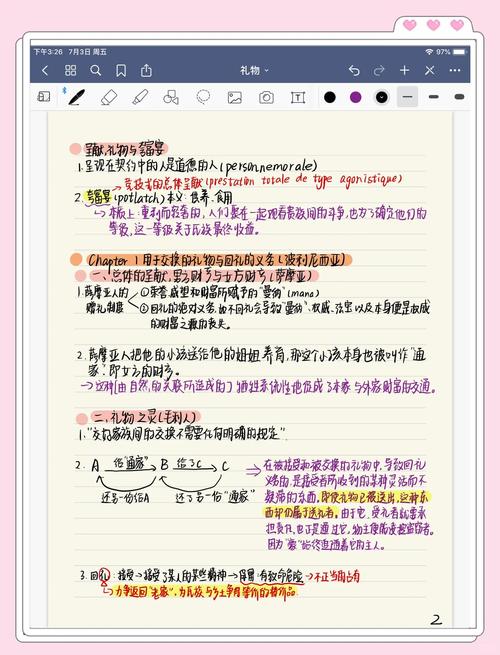 下午3:26 7月3日 周五
97%
礼物
呈献,礼物与夸富宴
1.呈现在契约中的人是道德的人(personne morale)
竞技式的总体呈献(prestation totale de type agonistique)
2.夸富宴(potlatch)本义:供养、食用
本质上:重利而轻奢的,人们聚在一起观看贵族间的斗争,也为了确定他们的
等级,这一等级关乎氏族最终收益。
Chapter 1 用于交换的礼物与回礼的义务(波利尼西亚)
一、总体的呈献,男方财产与女方财产(萨摩亚)
1.萨摩亚人的
赠礼制度
①荣誉、威望和财富所赋予的"曼纳"(mana)
②回礼的绝对义务,如不回礼会导致"曼纳"、权威、法宝以及本身便是权威
的财富之源的丧失。
2.萨摩亚人把他的小孩送给他的姐妹养育,那这个小孩本身也被叫作"通
家",即女方的财产。
这种(由自然的关联所造成的)牺牲系统性地促成了本家与外家财富的交通。
二、礼物之灵(毛利人)
1."交的家族间的交换不需要任何明确的规定"
2. A 给"通家" B 给了C C
还另一份给A 还了另一份"通家"
在被接受和被交换的礼物中,导致回礼
义务的,是接受者所收到的某种灵活而不
凝滞的东西。即使礼物已被送出,这种东
西却仍属于送礼者。由于它,受礼者就要承
担责任,也正是通过它,物主便能凌驾盗窃者。
因为"豪"始终追随着它的主人。
3.回礼:接受→接受了某人的某些精神→保留:有致命危险→不正当占有
力争返回"老家",为氏族与乡土争得等价的替代品。
2